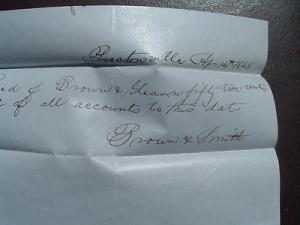 Proctorsville Apr 14th 1848
d of Brown & Gleason fifty-two cents
of all accounts to this date
Brown & Smith